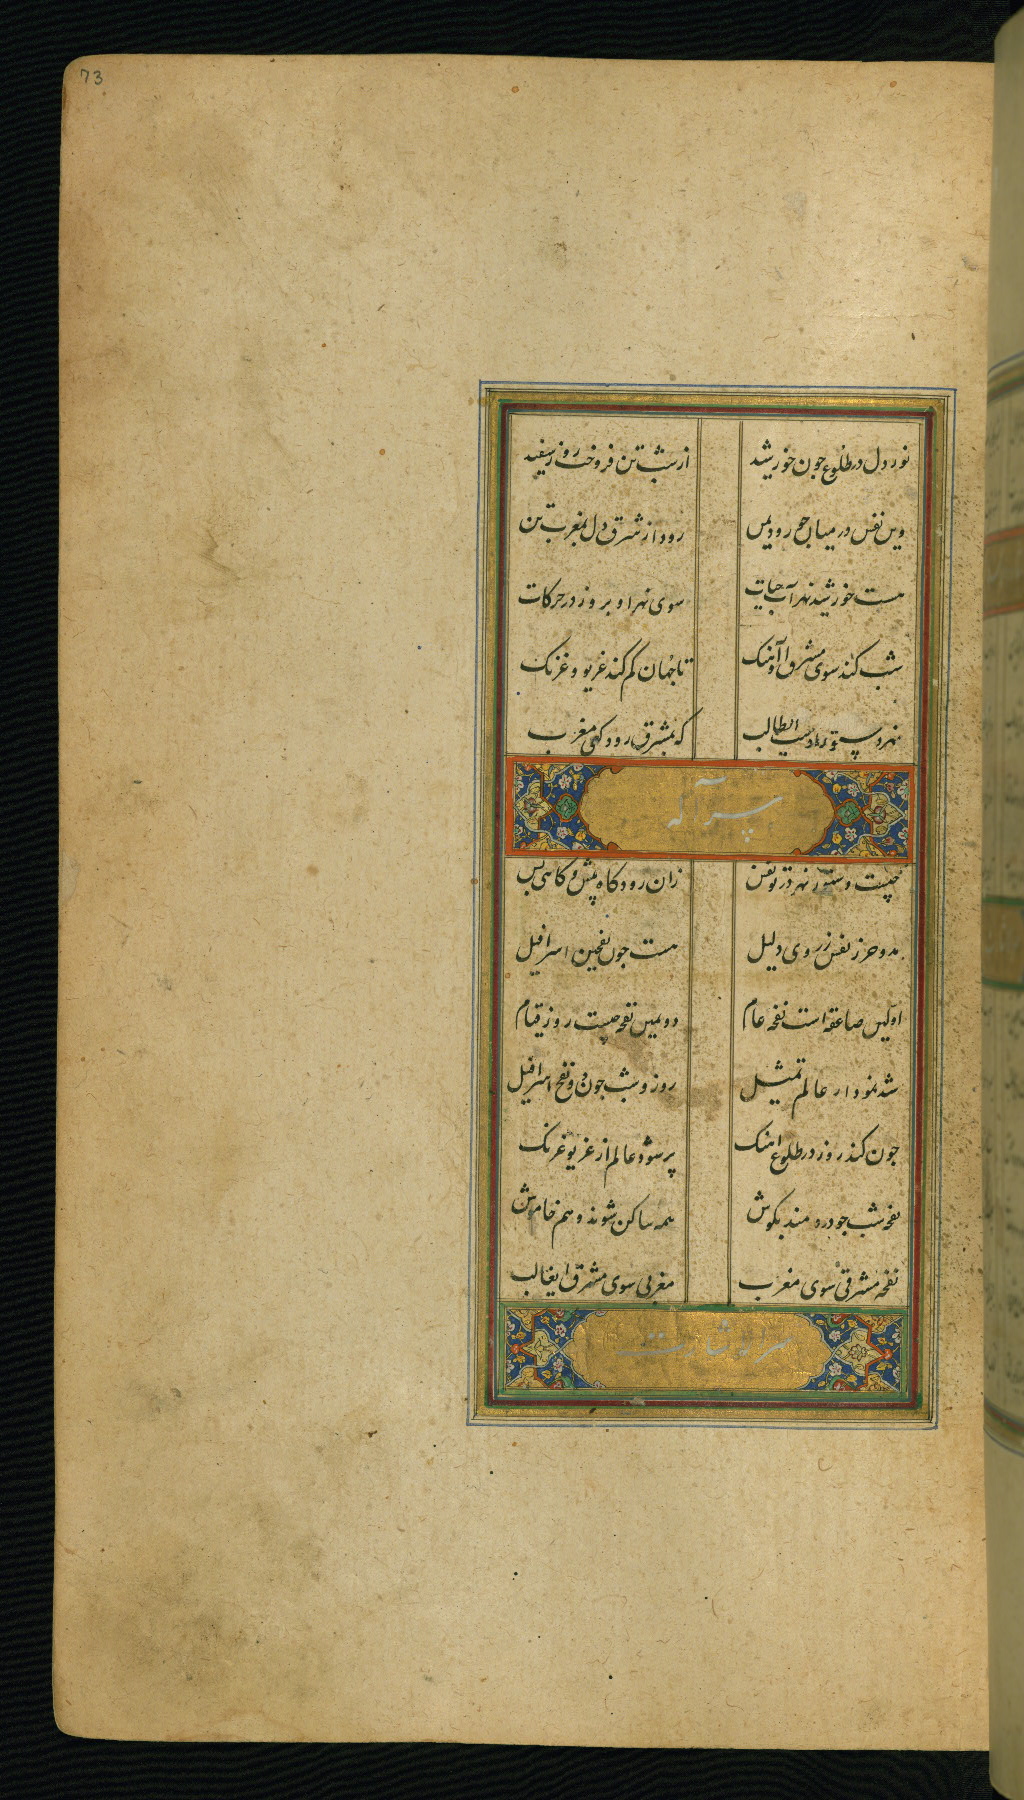 73
نور دل در طلوع چون خورشید از شب تن فروخت روز سفید
وین نفس در میان رود رود از شرق دل بمغرب تن
هست خورشید نهر آب حیات سوی نهر او بروز در حرکات
شب کند سوی مشرق آهنک تا جهان کم کند غریو و غرنک
که بمشرق رود کهی مغرب
چیست دستور نهر در تو نفس زان رود کاه پیش و کاهی پس
مد و جزر نفس ز روی دلیل هست جون نفختین اسرافیل
اولین صاعقه است نفخه عام دومین نفخه چیست روز قیام
شد نمودار عالم تمثیل روز و شب جون دو نفخ اسرافیل
جون کند روز در طلوع اهنک پر شود عالم از غریو غرنک
نفخه شب جو دردمند بکوش همه ساکن شوند و هم خاموش
نفخه مشرقی سوی مغرب مغربی سوی مشرق